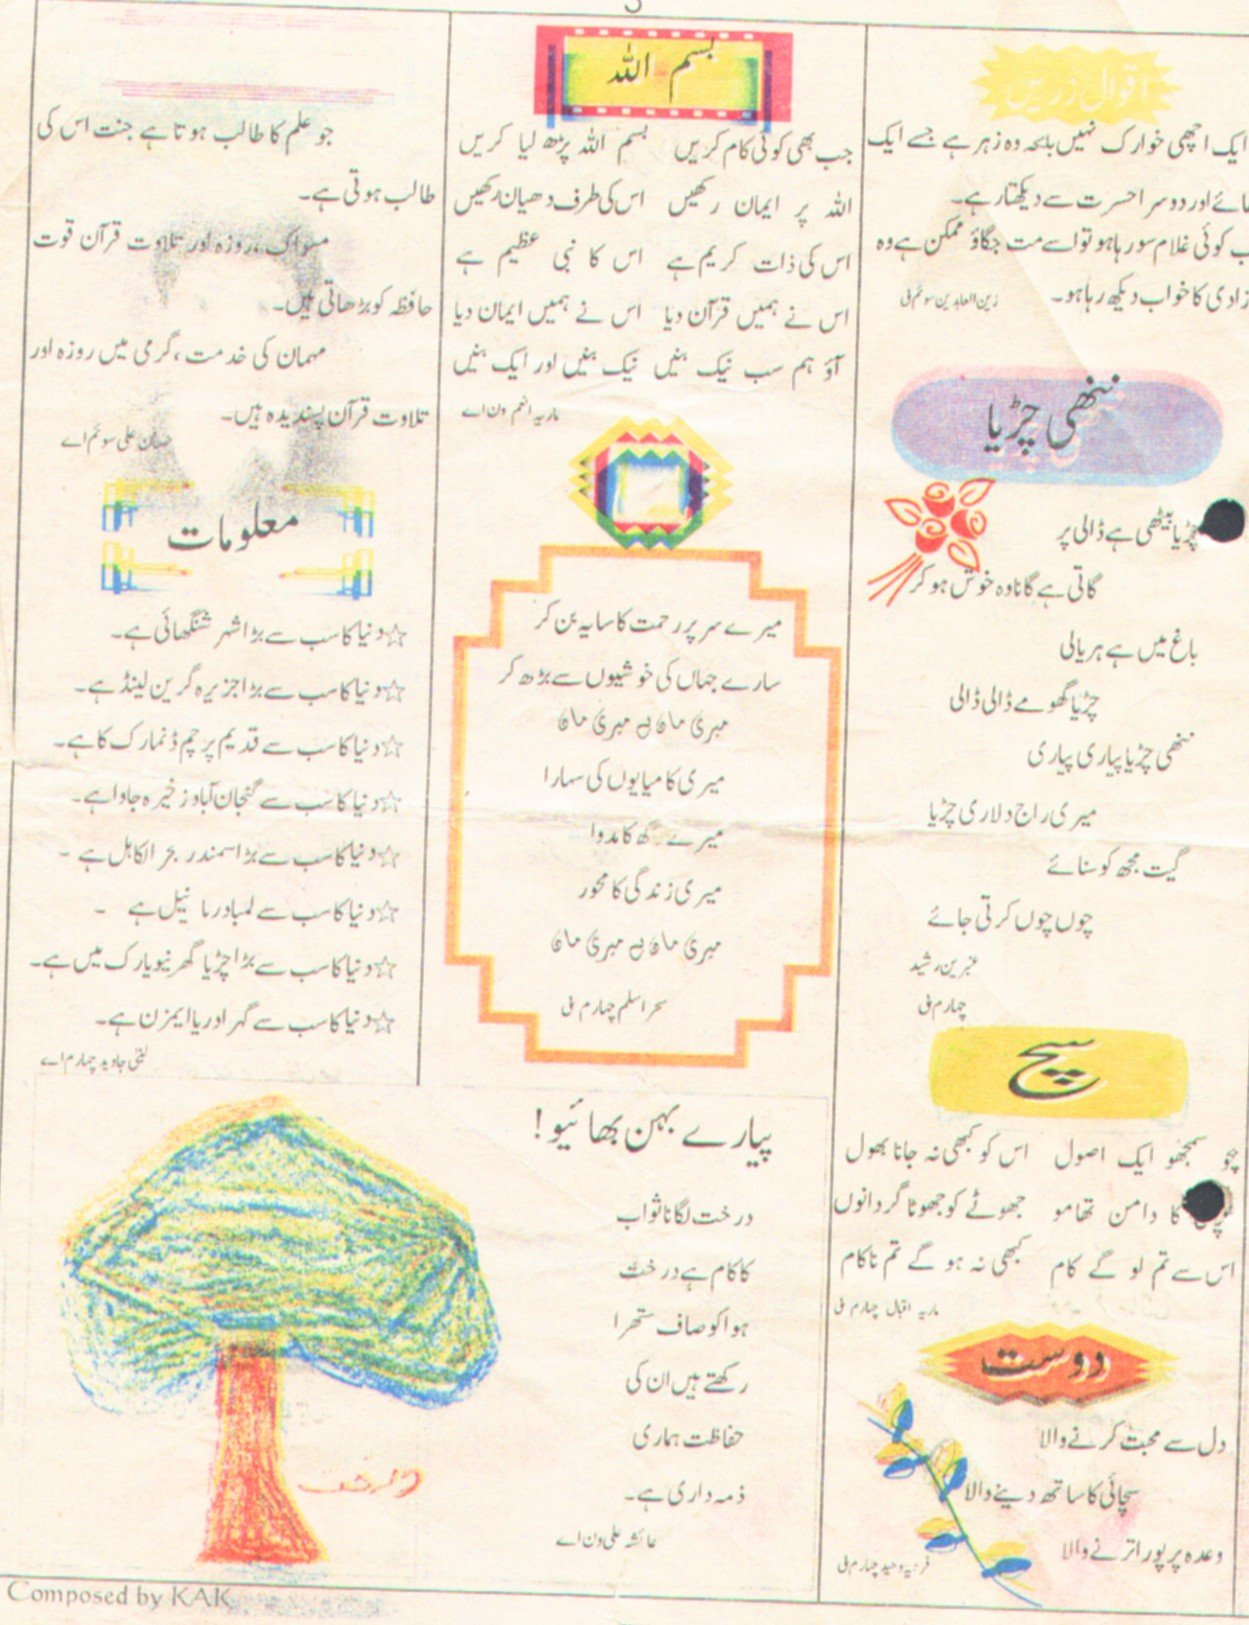 اقوال زریں
ایک اچھی خوارک نہیں بلکہ وہ زہر ہے جسے ایک
اور دوسرا حسرت سے دیکھتا رہے۔
کوئی غلام سو رہا ہو تو اسے مت جگاؤ ممکن ہے وہ
کا خواب دیکھ رہا ہو۔
زین العابدین سوئم بی
ننھی چڑیا
چڑیا بیٹھی ہے ڈالی پر
گاتی ہے گانا وہ خوش ہو کر
باغ میں ہے ہریالی
چڑیا گھومے ڈالی ڈالی
ننھی چڑیا پیاری پیاری
میری راج دلاری چڑیا
گیت مجھ کو سنائے
چوں چوں کرتی جائے
عنبرین رشید
چہارم بی
سچ
بچو سمجھو ایک اصول اس کو کبھی نہ جانا بھول
کا دامن تھامو جھوٹے کو جھوٹا گردانوں
اس سے تم لو گے کام کبھی نہ ہو گے تم ناکام
ماریہ اقبال چہارم بی
دوست
دل سے محبت کرنے والا
سچائی کا ساتھ دینے والا
وعدہ پر پورا اترنے والا
وحید چہارم بی
بسم اللہ
جب بھی کوئی کام کریں بسم اللہ پڑھ لیا کریں
اللہ پر ایمان رکھیں اس کی طرف دھیان رکھیں
اس کی ذات کریم ہے اس کا نبی عظیم ہے
اس نے ہمیں قرآن دیا اس نے ہمیں ایمان دیا
آؤ ہم سب نیک بنیں نیک بنیں اور ایک بنیں
ماریہ انعم ون اے
میرے سر پر رحمت کا سایہ بن کر
سارے جہاں کی خوشیوں سے بڑھ کر
میری ماں ہے میری ماں
میری کامیابیوں کی سہارا
میرے کا مدوا
میری زندگی کا محور
میری ماں ہے میری ماں
سحر اسلم چہارم بی
پیارے بہن بھائیو!
درخت لگانا ثواب
کا کام ہے درخت
ہوا کو صاف ستھرا
رکھتے ہیں ان کی
حفاظت ہماری
ذمہ داری ہے۔
عائشہ علی ون اے
جو علم کا طالب ہوتا ہے جنت اس کی
طالب ہوتی ہے۔
مسواک، روزہ اور تلاوت قرآن قوت
حافظہ کو بڑھاتی ہیں۔
مہمان کی خدمت، گرمی میں روزہ اور
تلاوت قرآن پسندیدہ ہیں۔
علی سوئم اے
معلومات
☆دنیا کا سب سے بڑا شہر شنگھائی ہے۔
☆دنیا کا سب سے بڑا جزیرہ گرین لینڈ ہے۔
☆دنیا کا سب سے قدیم پرچم ڈنمارک کا ہے۔
☆دنیا کا سب سے گنجان آباد زخیرہ جاوا ہے۔
☆دنیا کا سب سے بڑا سمندر بحر الکاہل ہے ۔
☆دنیا کا سب سے لمبا دریا نیل ہے ۔
☆دنیا کا سب سے بڑا چڑیا گھر نیویارک میں ہے۔
☆دنیا کا سب سے گہرا دریا ایمزن ہے۔
لبنیٰ جاوید چہارم اے
درخت
Composed by KAK